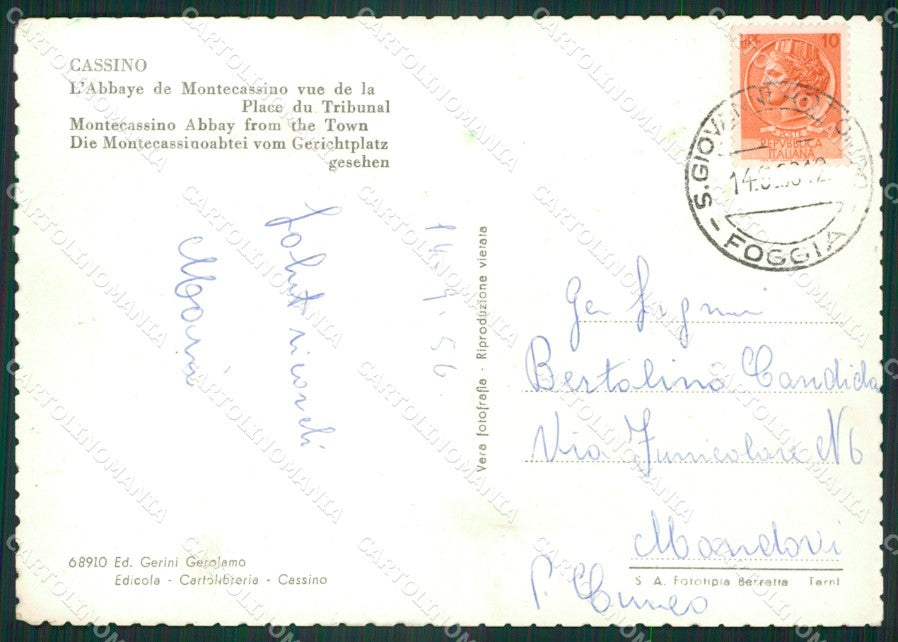 CASSINO
L'Abbaye de Montecassino vue de la
Place du Tribunal
Montecassino Abbay from the Town
Die Montecassinoabtei vom Gerichtplatz
gesehen
14.9.56.
Saluti ricordi
Maria
68910 Ed. Gerini Gerolamo
Edicola - Cartolibreria - Cassino
Vera fotofrafia - Riproduzione vietata
LIRE 10
POSTE
REPVBBLICA
ITALIANA
S. GIOVANNI ROTONDO
FOGGIA
Bertolino Candida
Via Funicolare N 6
Mondovi
P. Cuneo
S. A. Fototipia Berretta Terni
CARTOLINOMANIA